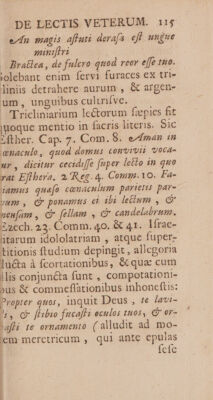 DE LECTIS VETERUM. 115
An magis astuti derasa est ungue
ministri
Bractea, de fulcro quod reor esse tuo.
olebant enim servi furaces ex tri-
liniis detrahere aurum, & argen-
um, unguibus cultrisve.
Tricliniarium lectorum sæpies fit
quoque mentio in sacris literis. Sic
Esther. Cap. 7. Com. 8. Aman in
cœnaculo, quod domus convivii voca-
ur, dicitur cecidisse super lecto in quo
rat Esthera. 2 Reg. 4. Comm. 10. Fa-
iamus quaso cœnaculum parietis par-
vum, & ponamus ei ibi lectum, &
mensam, & sellam, & candelabrum.
Ezech. 23. Comm. 40. & 41. Israe-
itarum idololatriam, atque super-
titionis studium depingit, allegoria
ducta à scortationibus, & quæ cum
lis conjuncta sunt, compotationi-
us & commessationibus inhonestis:
Propter quos, inquit Deus, te lavi-
, & stibio fucasti oculos tuos, & or-
asti te ornamento (alludit ad mo-
em meretricum, qui ante epulas
sese